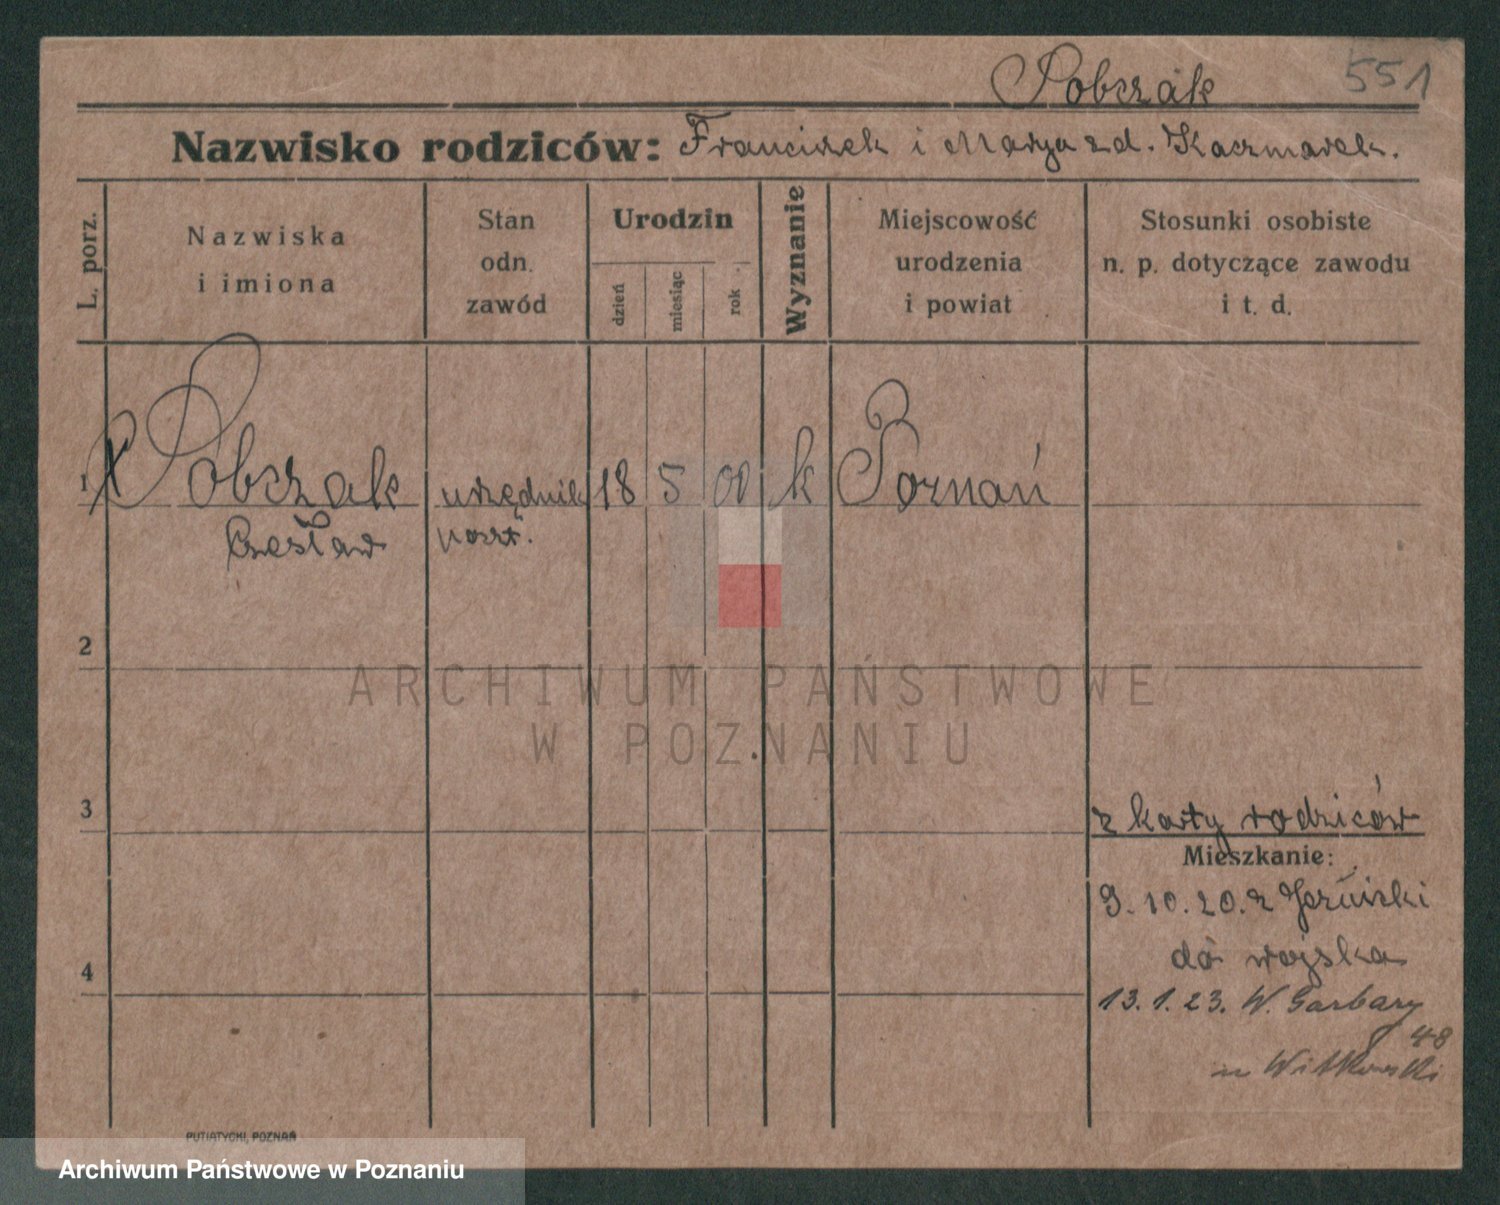 Sobczak 551
Nazwisko rodziców: Franciszek i Marya zd. Kaczmarek.
L. porz.
Nazwiska
i imiona
Stan
odn.
zawód
Urodzin
dzień
miesiąc
rok
Wyznanie
Miejscowość
urodzenia
i powiat
Stosunki osobiste
n. p. dotyczące zawodu
i t. d.
1 Sobczak urzędnik 18 5 00 k Poznań
Czesław poczt.
2
3
z karty rodziców
Mieszkanie:
9.10.20. z
do wojska
4
13.1.23. W. Garbary
48
u Witkowski
ARCHIWUM PAŃSTWOWE
W POZNANIU
PUTIATYCKI, POZNAŃ
Archiwum Państwowe w Poznaniu